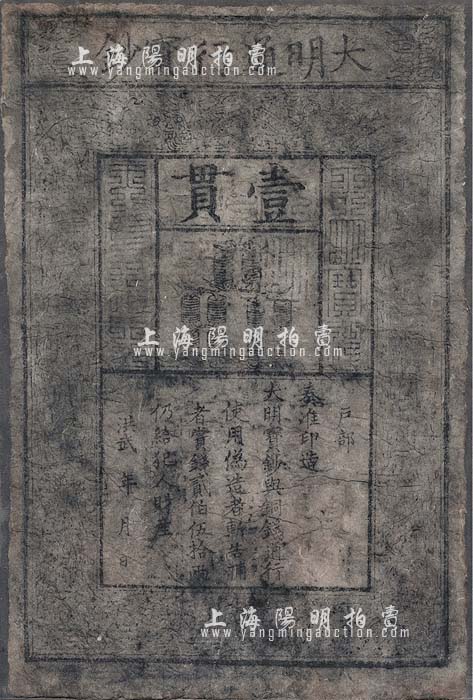 上海陽明拍賣
www.yangmingauction.com
大明通行寶鈔
壹貫
大明寶鈔
天下通行
上海陽明拍賣
www.yangmingauction.com
户部
奏准印造
大明寶鈔與銅錢通行
使用偽造者斬告捕
者賞銀貳佰伍拾兩
仍給犯人財產
洪武 年 月 日
上海陽明拍賣
www.yangmingauction.com